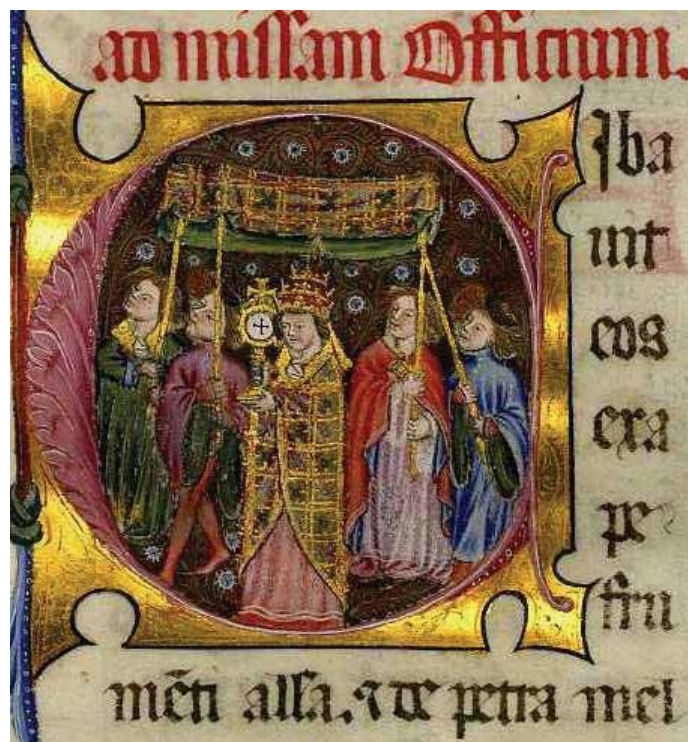 ad missam Officium.
Jba
int
eos
exa
pe
fru
mēti assa. ⁊ de petra mel